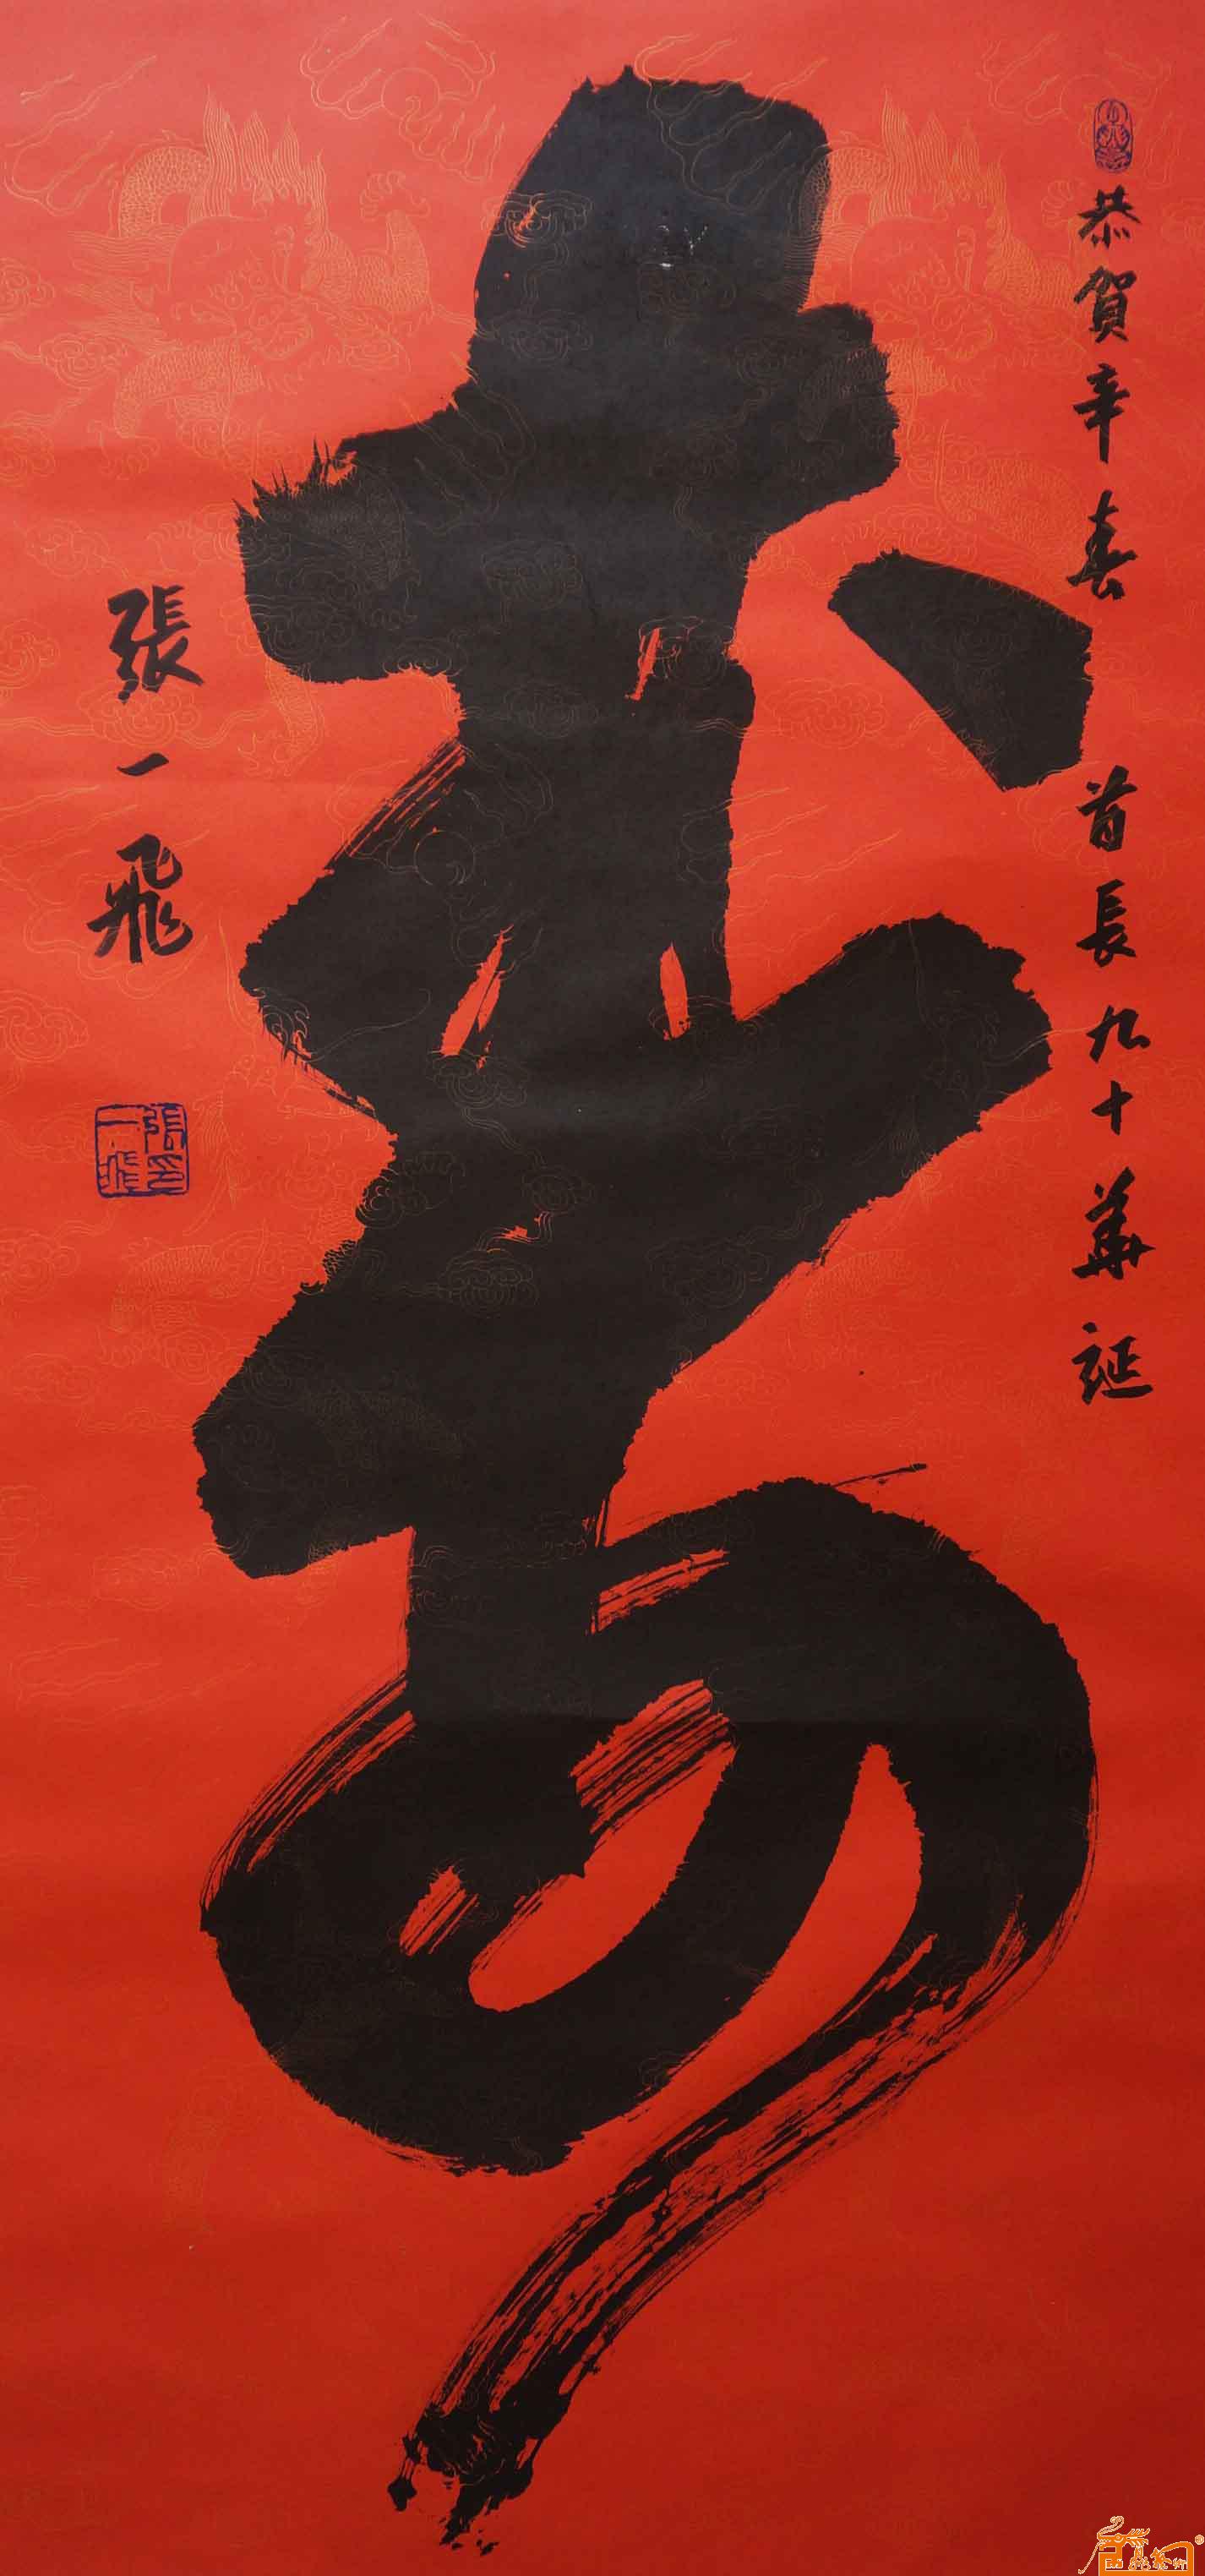 恭賀辛春 首長九十華誕
壽
張一飛
張一飛印